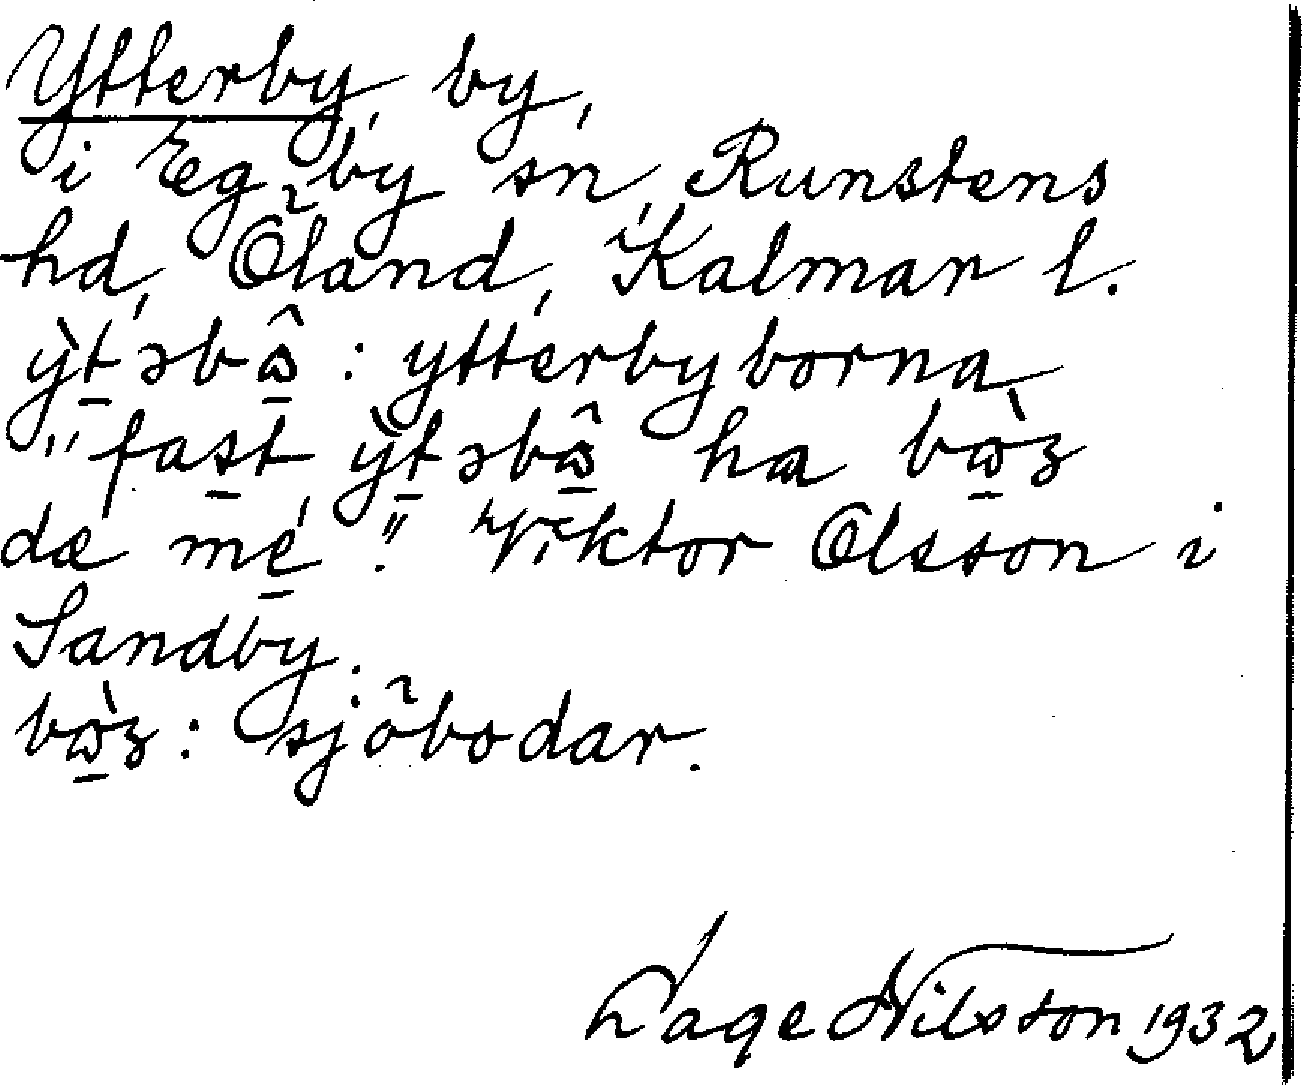 Ytterby, by,
i Egby sn, Runstens
hd, Öland, Kalmar l.
ỳt̠əbω̠̂ : ytterbyborna
"fas̠t ỳt̠əbω̠̂ ha bὼ̠z
dæ mé̠." Viktor Olsson i
Sandby.
bὼ̠z : sjöbodar.
Lage Nilsson 1932